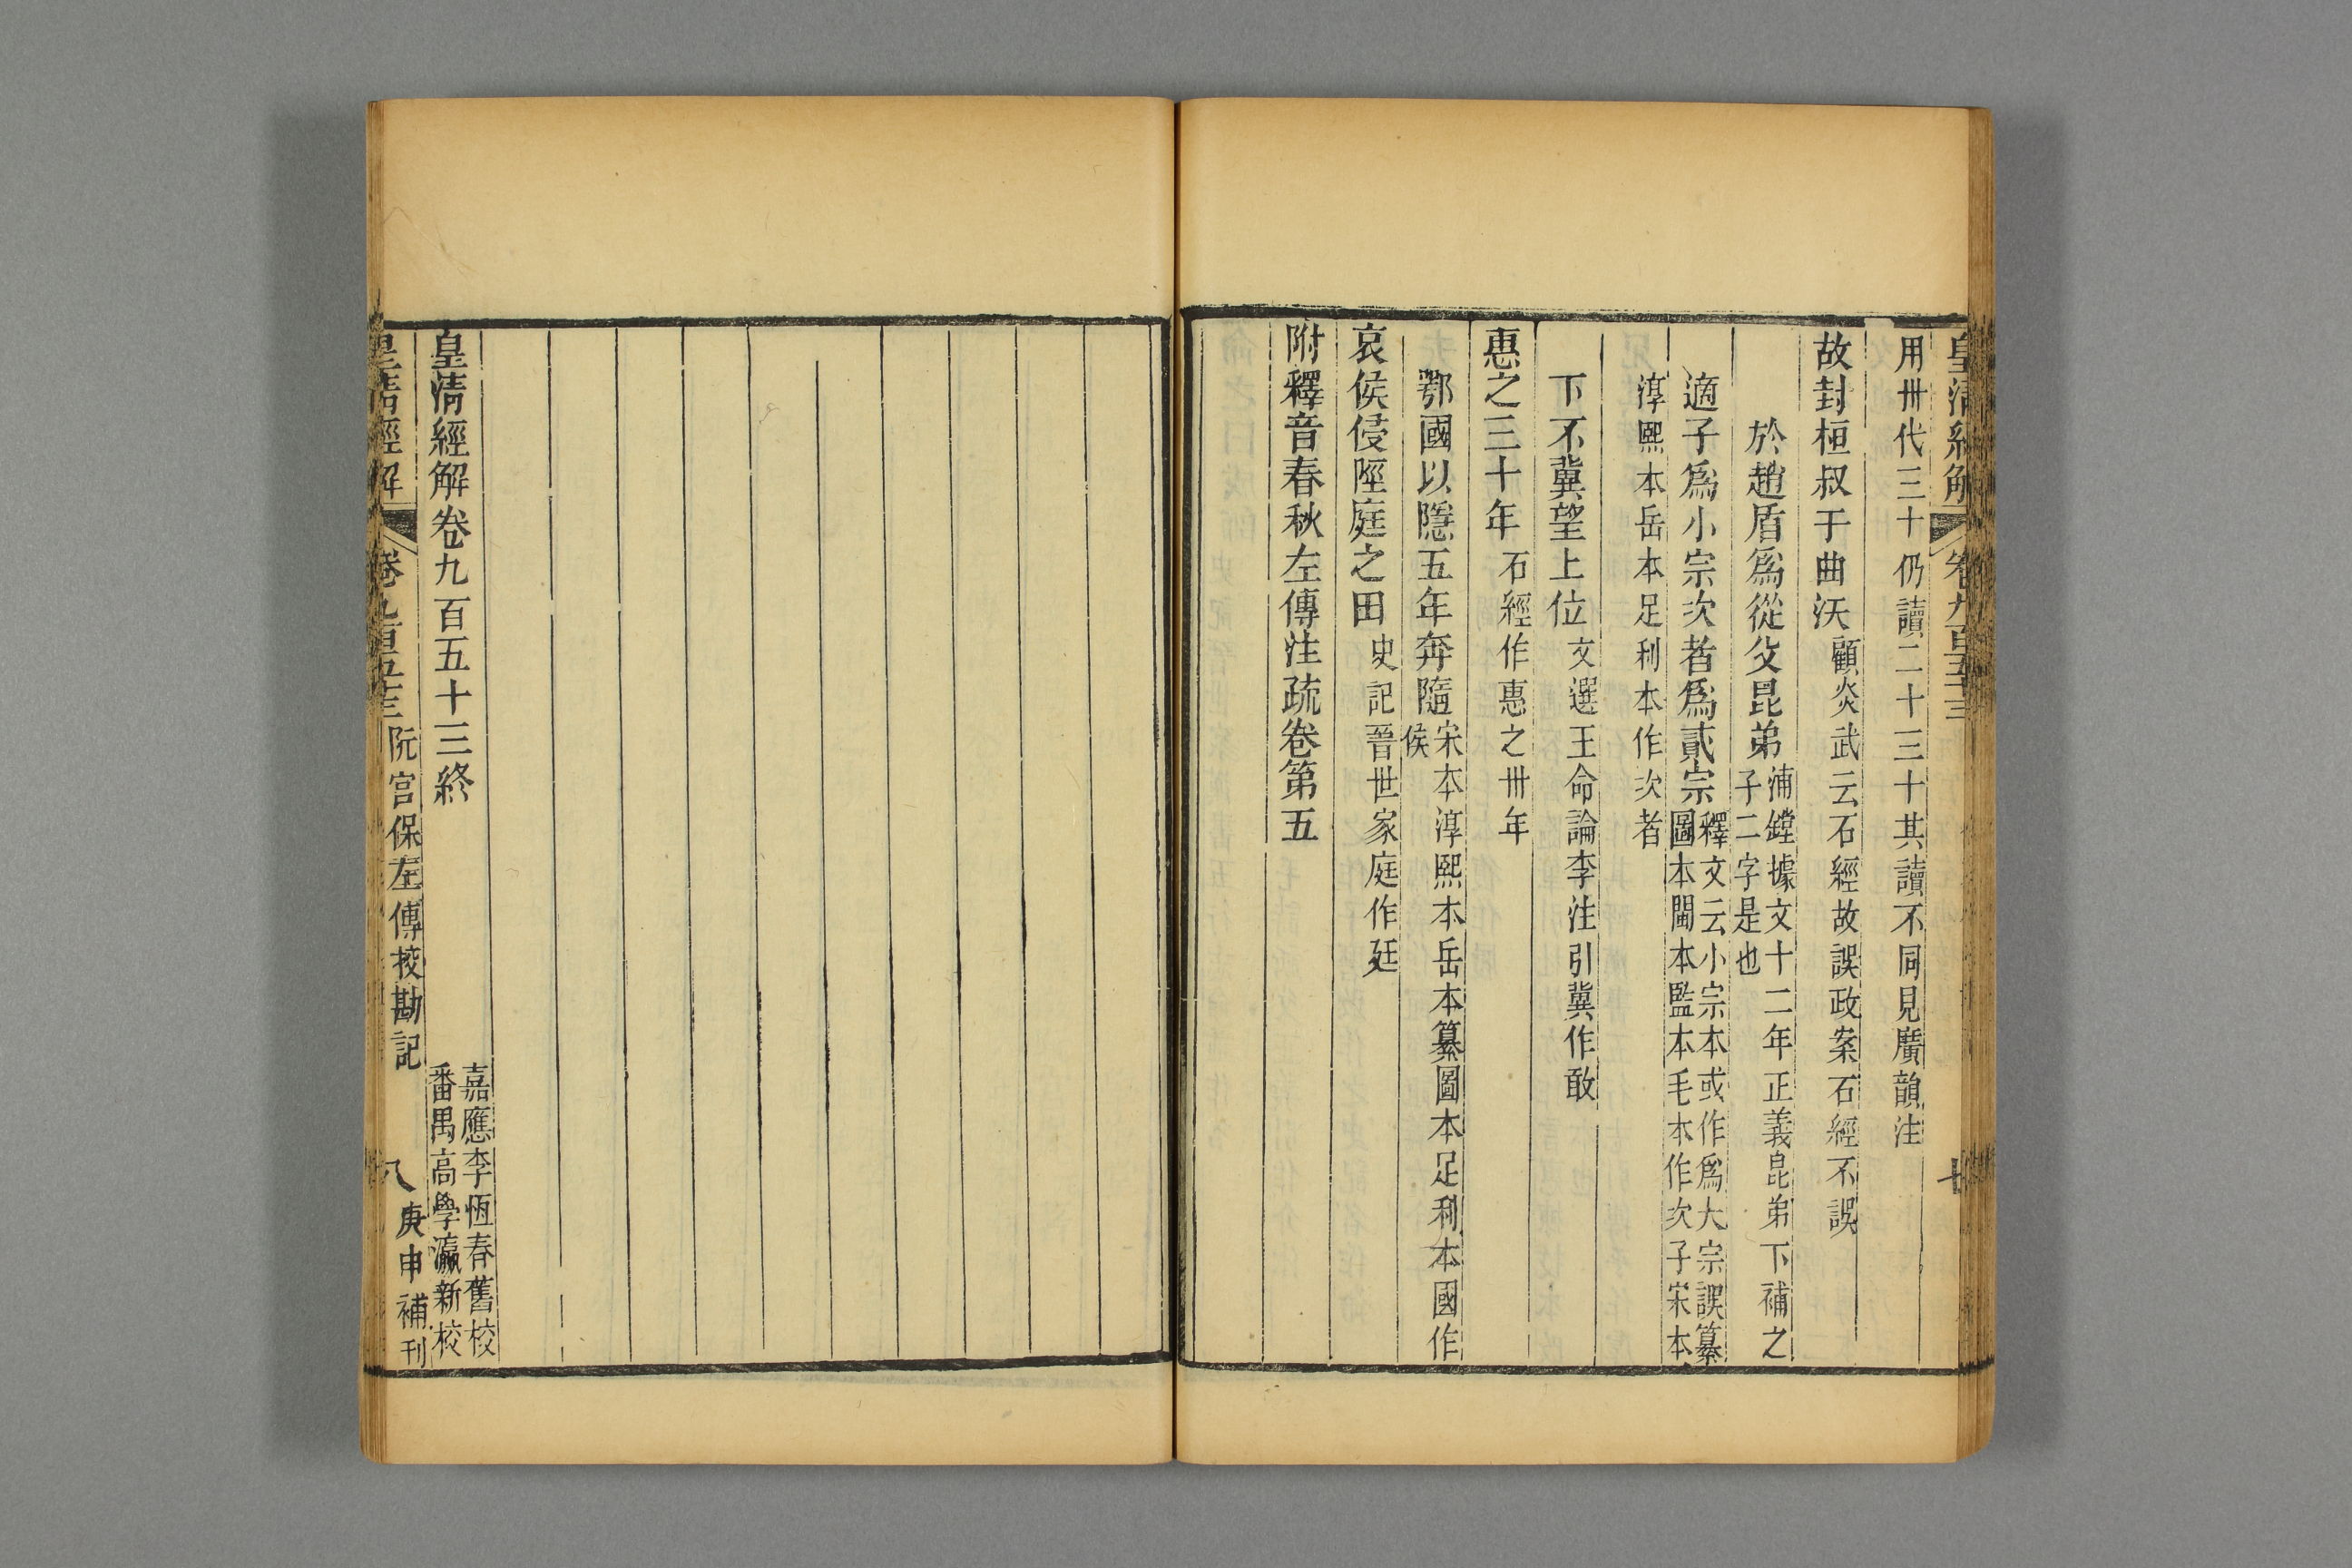 皇清經解
卷九百五十三
用卅代三十仍讀二十三十其讀不同見廣韻注
故封桓叔于曲沃顧炎武云石經故誤政案石經不誤
於趙盾爲從父昆弟浦鏜據文十二年正義昆弟下補之
子二字是也
適子爲小宗次者爲貳宗釋文云小宗本或作爲大宗誤纂
圖本閩本監本毛本作次子宋本
淳熙本岳本足利本作次者
下不冀望上位文選王命論李注引冀作敢
惠之三十年石經作惠之卅年
鄂國以隱五年奔隨宋本淳熙本岳本纂圖本足利本國作
侯
哀侯侵陘庭之田史記晉世家庭作廷
附釋音春秋左傳注疏卷第五
皇清經解卷九百五十三終
嘉應李恆春舊校
番禺高學瀛新校
皇清經解
卷九百五十三
阮宮保左傳挍勘記
八
庚申補刊